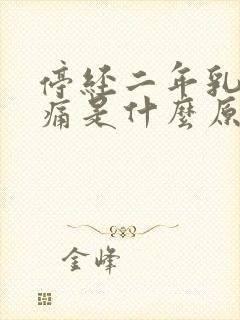 停经二年乳
痛是什麼原
金峰